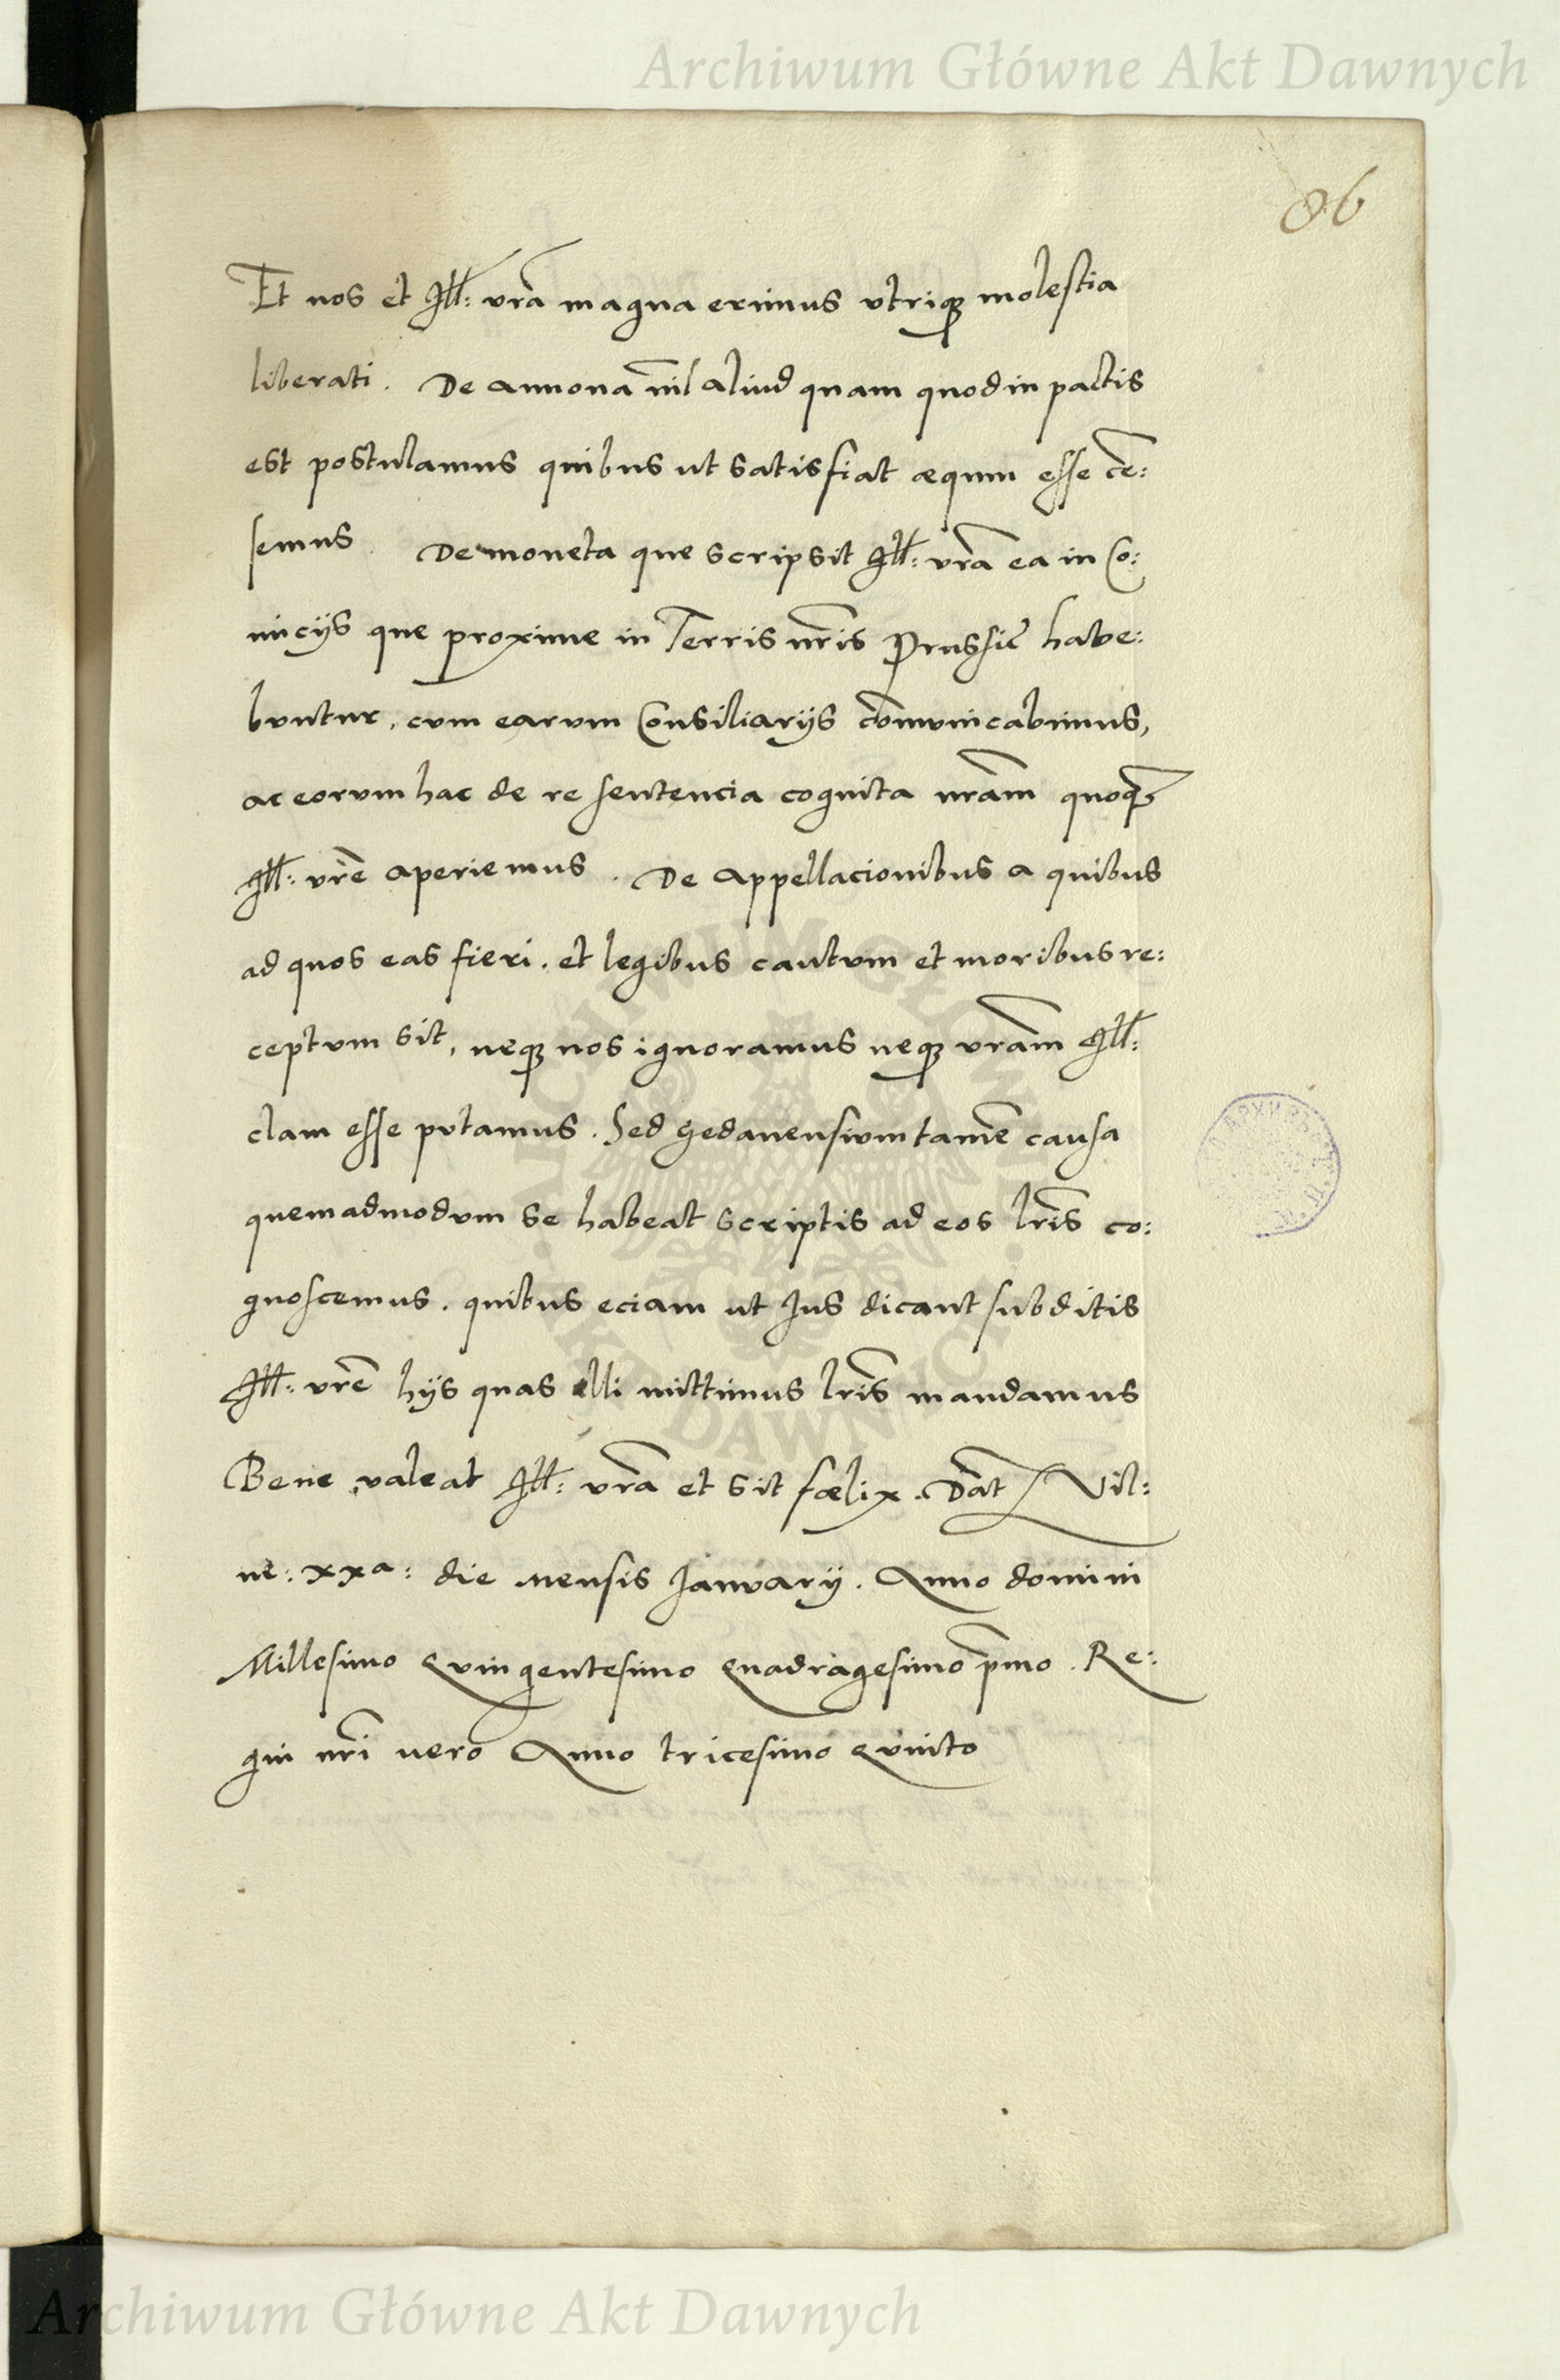 Archiwum Główne Akt Dawnych
86
Et nos et Ill: vrã magna erimus vtriqꝫ molestia
liberati. De annona nĩl aliud quam quod in pactis
est postulamus quibus ut satisfiat æqum esse cẽ:
semus. De moneta que scripsit Ill: vrã ea in Co:
micijs que proxime in Terris nr̃is Prussie habe:
buntur, cum earum Consiliarijs cõmunicabimus,
ac eorum hac de re sentencia cognita nrãm quoqꝫ
Ill: vrẽ aperiemus. De appellacionibus a quibus
ad quos eas fieri. et legibus cautum et moribus re:
ceptum sit, neqꝫ nos ignoramus neqꝫ vrãm Ill:
clam esse putamus. Sed gedanensium tamẽ causa
quemadmodum se habeat scriptis ad eos lr̃is co:
gnoscemus. quibus eciam ut Ius dicant subditis
Ill: vrẽ hijs quas illi mittimus lr̃is mandamus
Bene valeat Ill: vrã et sit fœlix. Dat̃ Vil:
ne: xxa: die mensis Ianuarij. Anno domini
Millesimo Quingentesimo Quadragesimo p̃mo. Re:
gni nr̃i vero Anno tricesimo Quinto
ARCHIWUM GŁÓWNE AKT DAWNYCH
Archiwum Główne Akt Dawnych